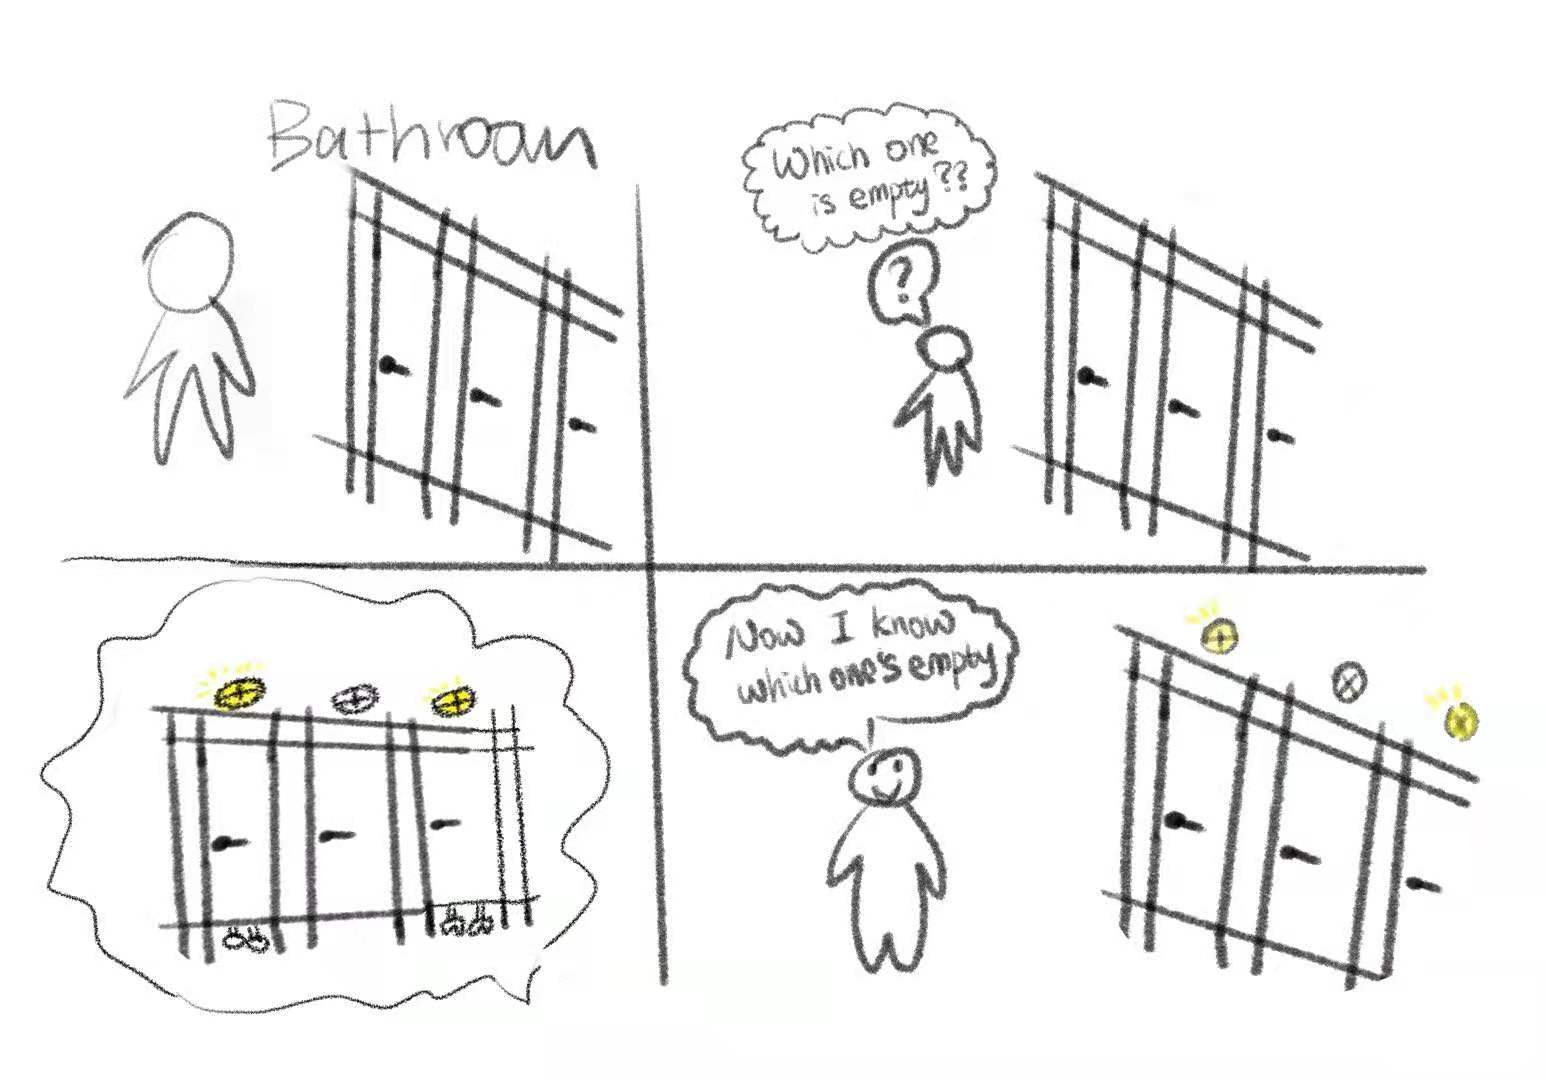 Bathroom
Which one
is empty??
?
Now I know
which one's empty